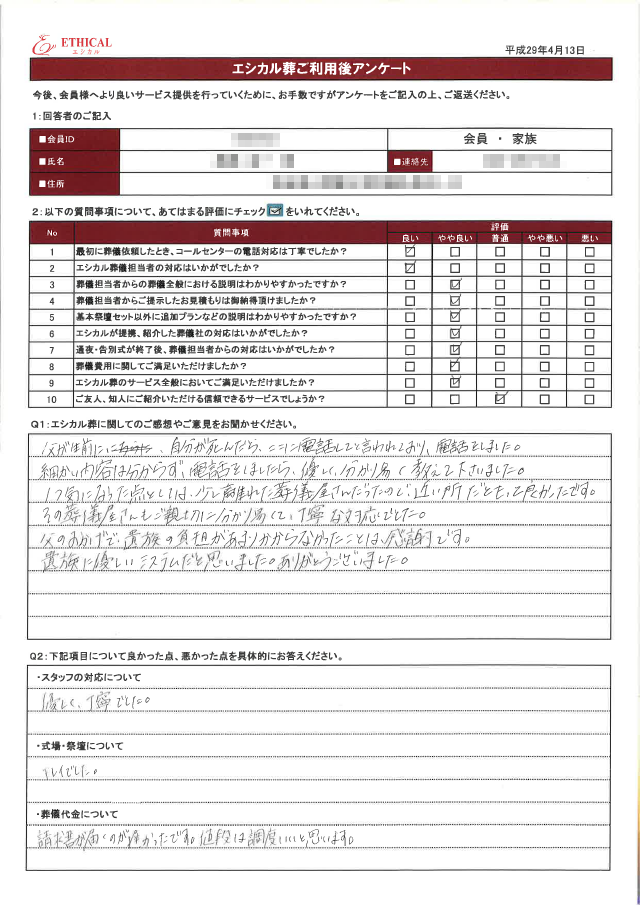 ETHICAL
エシカル
平成29年4月13日
エシカル葬ご利用後アンケート
今後、会員様へより良いサービス提供を行っていくために、お手数ですがアンケートをご記入の上、ご返送ください。
1：回答者のご記入
■会員ID 会員 ・ 家族
■氏名 ■連絡先
■住所
2：以下の質問事項について、あてはまる評価にチェック☑をいれてください。
No 質問事項 評価
良い やや良い 普通 やや悪い 悪い
1 最初に葬儀依頼したとき、コールセンターの電話対応は丁寧でしたか？
2 エシカル葬儀担当者の対応はいかがでしたか？
3 葬儀担当者からの葬儀全般における説明はわかりやすかったですか？
4 葬儀担当者からご提示したお見積もりは御納得頂けましたか？
5 基本祭壇セット以外に追加プランなどの説明はわかりやすかったですか？
6 エシカルが提携、紹介した葬儀社の対応はいかがでしたか？
7 通夜・告別式が終了後、葬儀担当者からの対応はいかがでしたか？
8 葬儀費用に関してご満足いただけましたか？
9 エシカル葬のサービス全般においてご満足いただけましたか？
10 ご友人、知人にご紹介いただける信頼できるサービスでしょうか？
Q1：エシカル葬に関してのご感想やご意見をお聞かせください。
父が生前に、自分が死んだら、ここに電話してと言われており、電話をしました。
細かい内容は分からず、電話をしましたら、優しく、分かり易く教えて下さいました。
1つ気になった点としては、少し離れた葬儀屋さんだったので、近い所だともっと良かったです。
その葬儀屋さんもご親切に分かり易くて、丁寧な対応でした。
父のおかげで、遺族の負担があまりかからなかったことは、感謝です。
遺族に優しいシステムだと思いました。ありがとうございました。
Q2：下記項目について良かった点、悪かった点を具体的にお答えください。
・スタッフの対応について
優しく、丁寧でした。
・式場・祭壇について
キレイでした。
・葬儀代金について
請求書が届くのが遅かったです。値段は調度いいと思います。